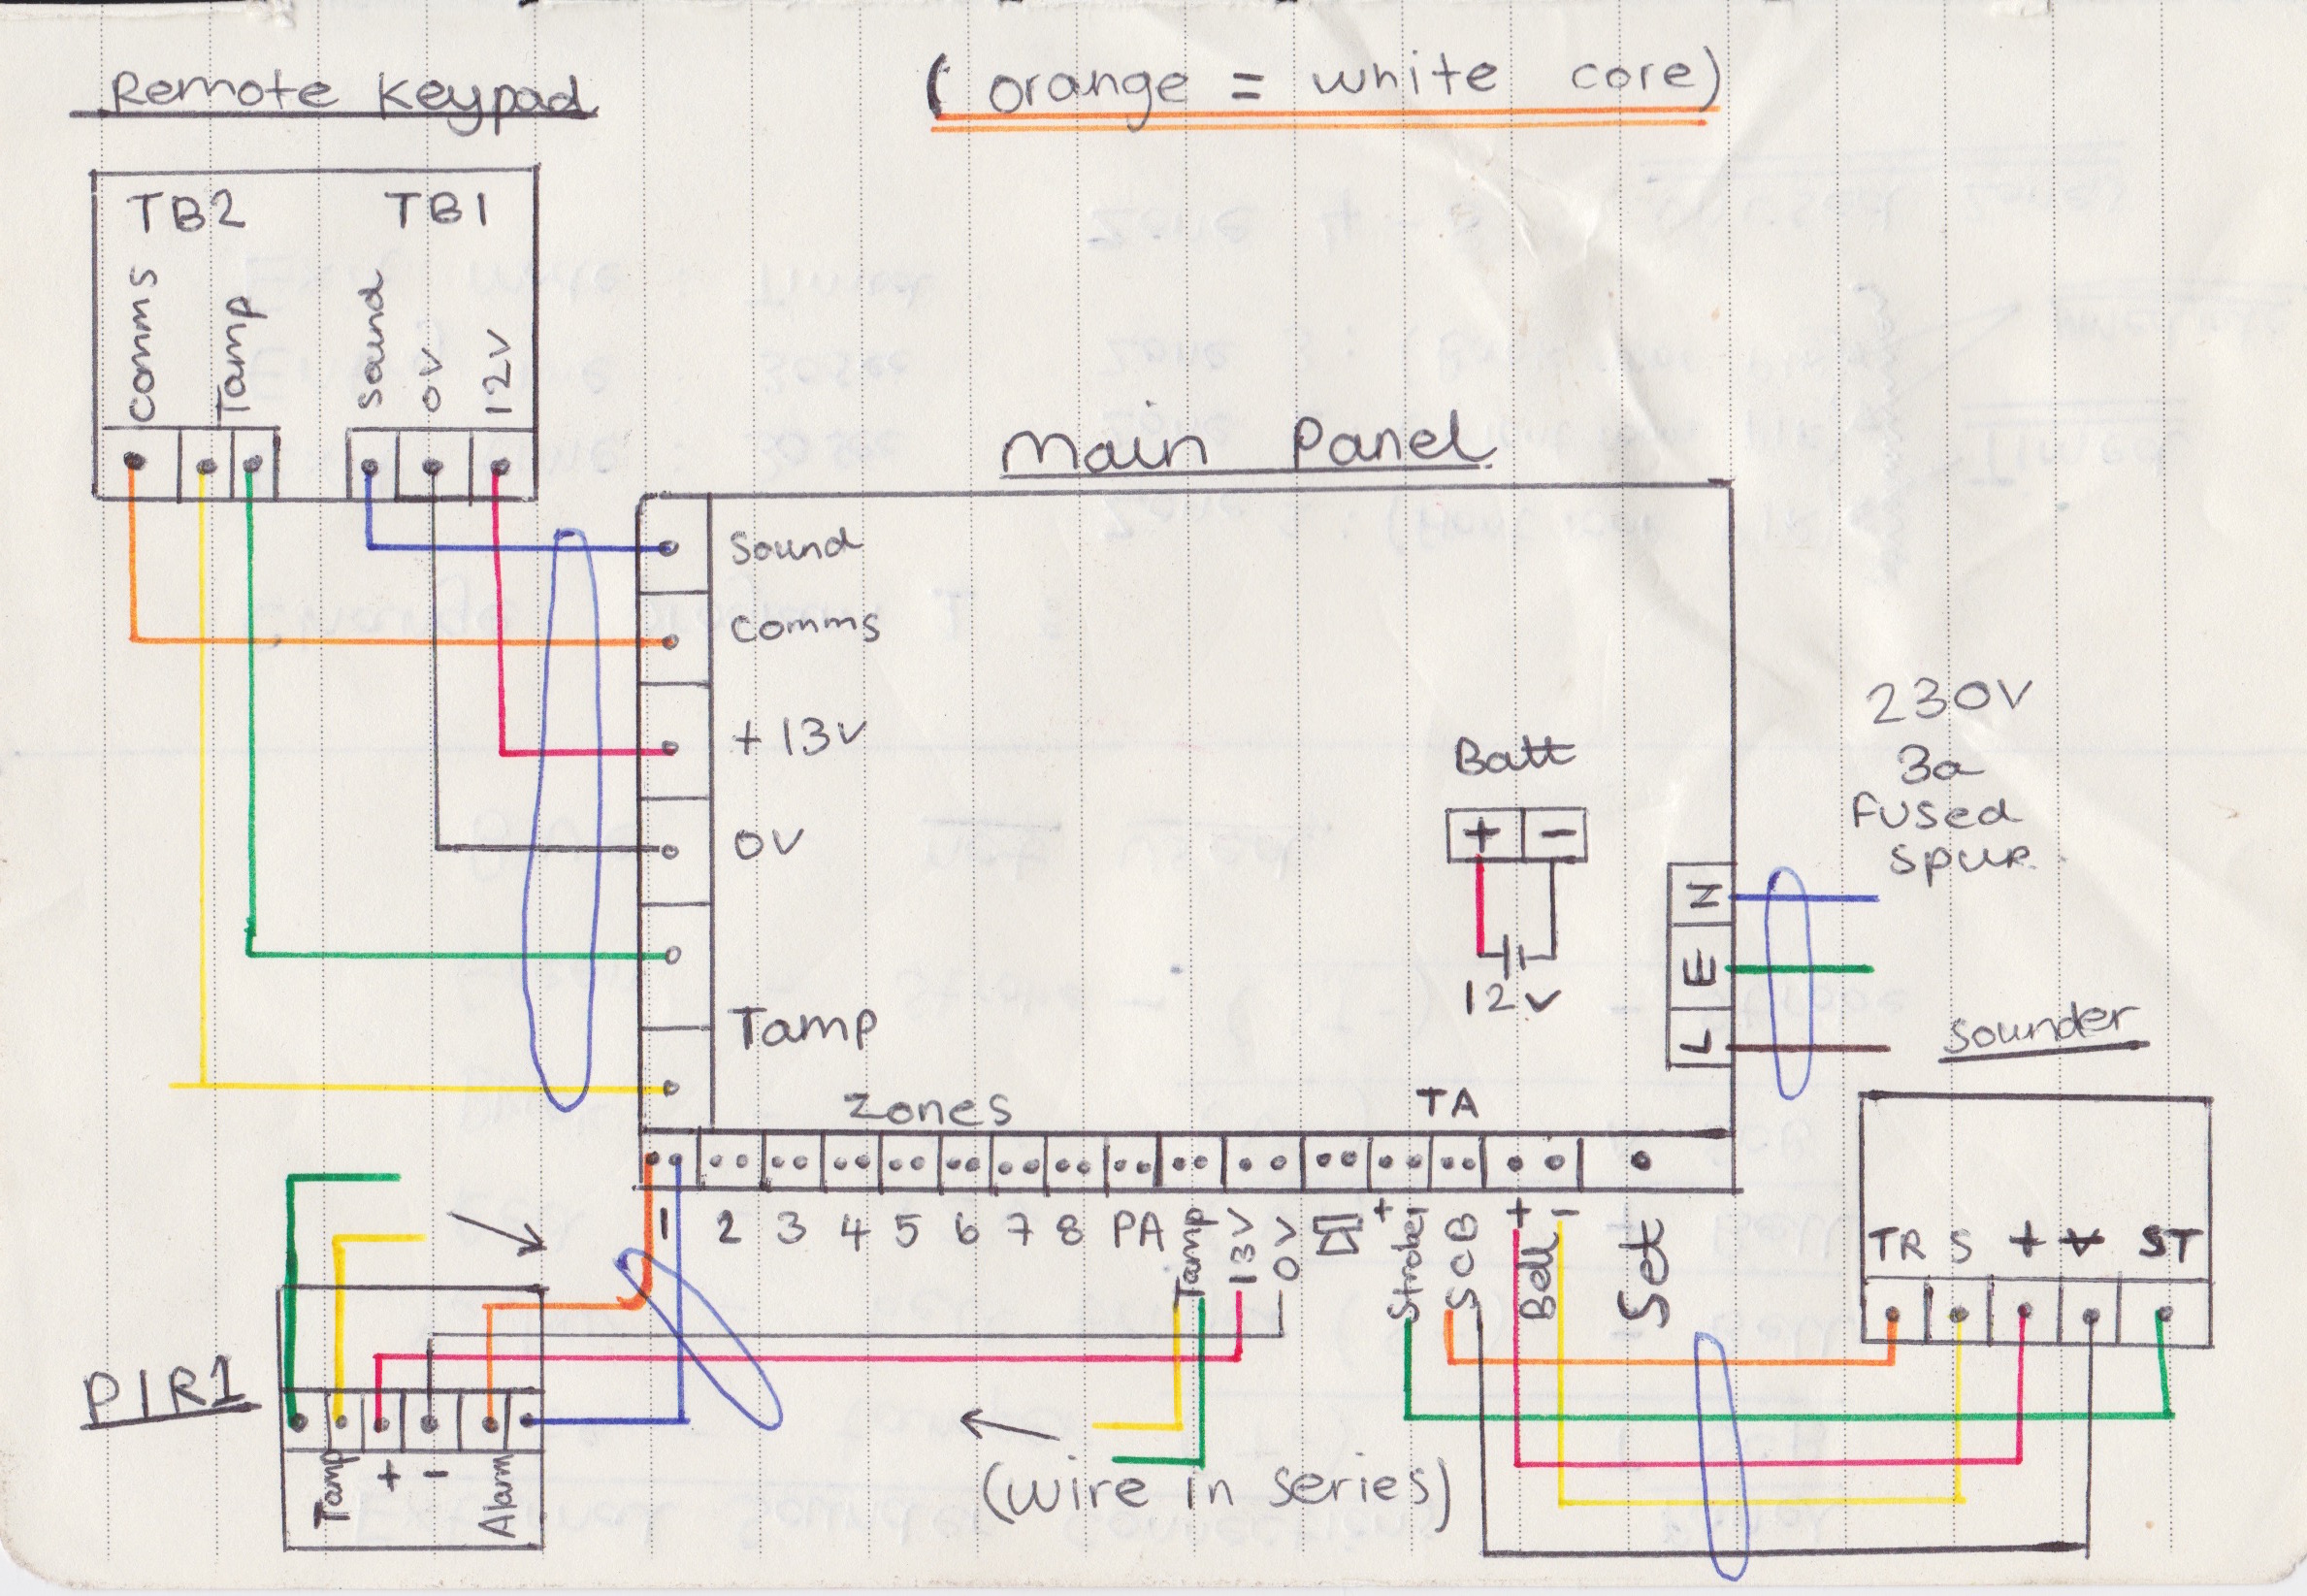 Remote Keypad
( orange = white core)
TB2 TB1
Comms
Tamp
Sound
0V
12V
Main Panel
Sound
Comms
+ 13V
0V
Tamp
Zones
Batt
+ -
12V
N
E
L
230V
3a
fused
spur.
TA
1 2 3 4 5 6 7 8 PA Tamp 13V 0V
+
SCB
+ Bell -
Set
Sounder
TR S + ST
PIR1
Tamp + - Alarm
(wire in series)